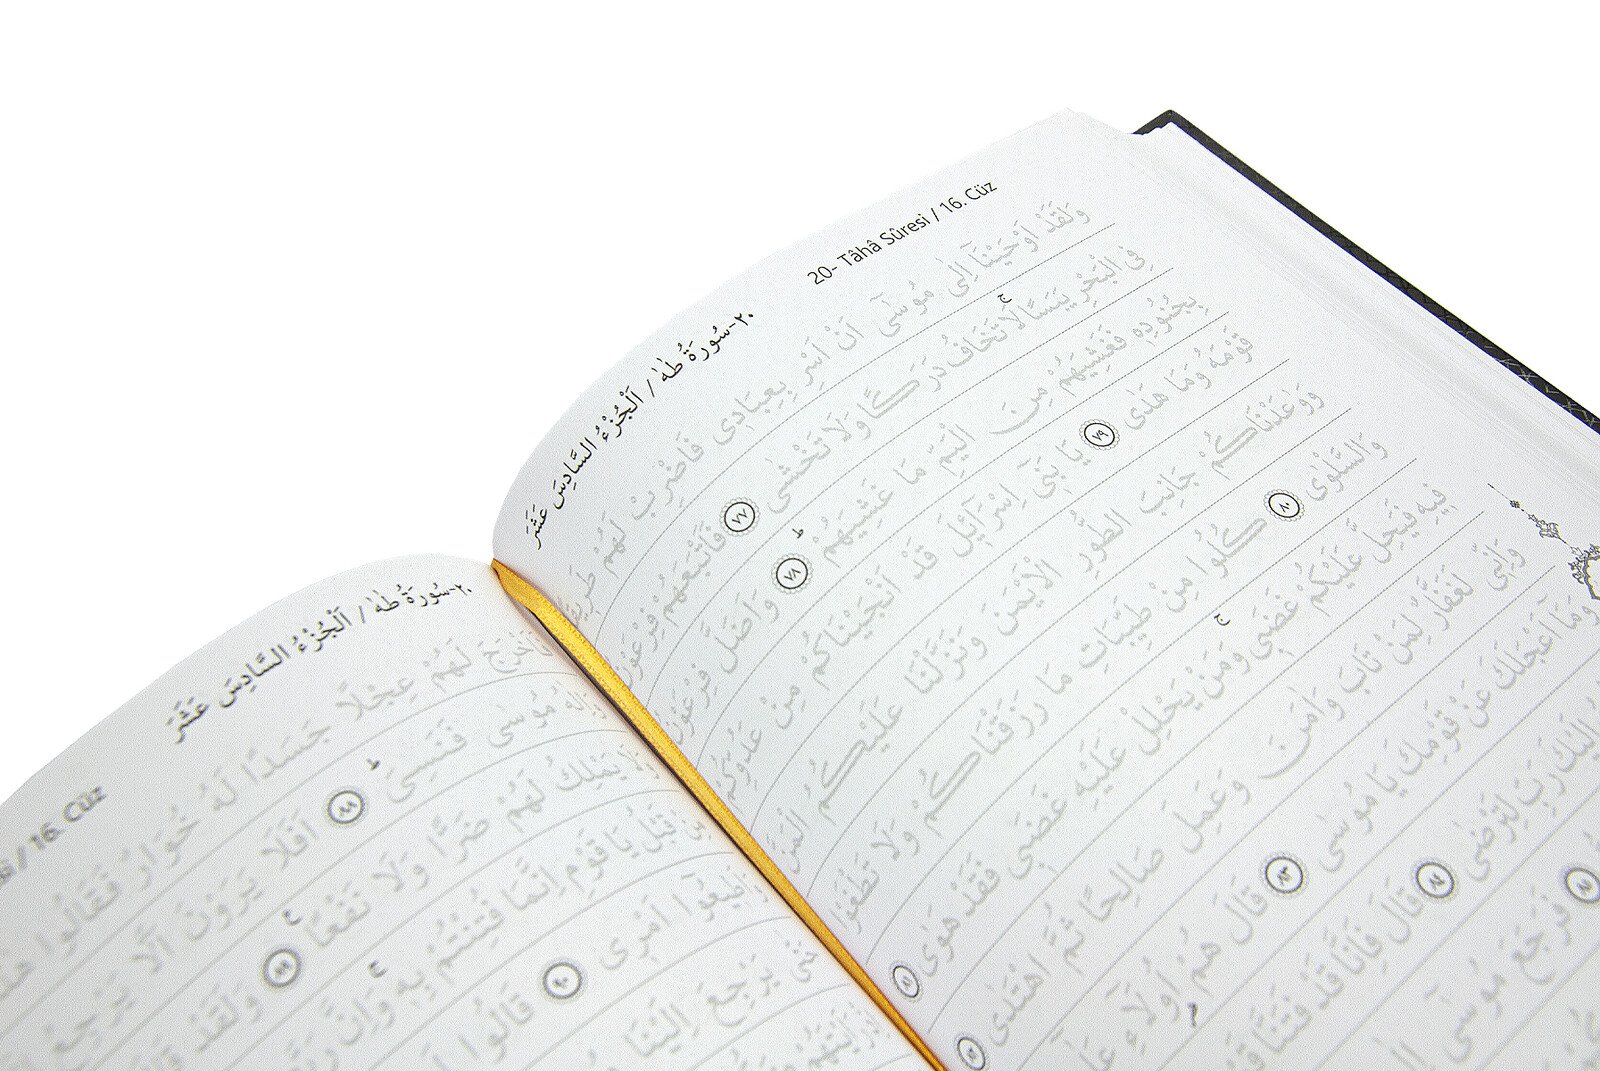 ٢٠-سُورَةُ طٰهٰ / اَلْجُزْءُ السَّادِسَ عَشَرَ 20- Tâhâ Sûresi / 16. Cüz
وَلَقَدْ اَوْحَيْنَٓا اِلٰى مُوسٰٓى اَنْ اَسْرِ بِعِبَادٖى فَاضْرِبْ لَهُمْ
فِى الْبَحْرِ يَبَسًا لَا تَخَافُ دَرَكًا وَلَا تَخْشٰى ٧٧ فَاَتْبَعَهُمْ فِرْعَوْنُ
بِجُنُودِهٖ فَغَشِيَهُمْ مِنَ الْيَمِّ مَا غَشِيَهُمْ ٧٨ وَاَضَلَّ فِرْعَوْنُ
قَوْمَهُ وَمَا هَدٰى ٧٩ يَا بَنٖٓى اِسْرَٓائٖلَ قَدْ اَنْجَيْنَاكُمْ مِنْ عَدُوِّكُمْ
وَوٰعَدْنَاكُمْ جَانِبَ الطُّورِ الْاَيْمَنَ وَنَزَّلْنَا عَلَيْكُمُ الْمَنَّ
وَالسَّلْوٰى ٨٠ كُلُوا مِنْ طَيِّبَاتِ مَا رَزَقْنَاكُمْ وَلَا تَطْغَوْا
فٖيهِ فَيَحِلَّ عَلَيْكُمْ غَضَبٖى وَمَنْ يَحْلِلْ عَلَيْهِ غَضَبٖى فَقَدْ هَوٰى ٨١
وَاِنّٖى لَغَفَّارٌ لِمَنْ تَابَ وَاٰمَنَ وَعَمِلَ صَالِحًا ثُمَّ اهْتَدٰى ٨٢
وَمَٓا اَعْجَلَكَ عَنْ قَوْمِكَ يَا مُوسٰى ٨٣ قَالَ هُمْ اُولَٓاءِ
اِلَيْكَ رَبِّ لِتَرْضٰى ٨٤ قَالَ فَاِنَّا قَدْ فَتَنَّا
فَرَجَعَ مُوسٰٓى
٢٠-سُورَةُ طٰهٰ / اَلْجُزْءُ السَّادِسَ عَشَرَ / 16. Cüz
فَاَخْرَجَ لَهُمْ عِجْلًا جَسَدًا لَهُ خُوَارٌ فَقَالُوا
مُوسٰى فَنَسِىَ ٨٨ اَفَلَا يَرَوْنَ اَلَّا يَرْجِعُ
يَمْلِكُ لَهُمْ ضَرًّا وَلَا نَفْعًا ٨٩ وَلَقَدْ
قَبْلُ يَا قَوْمِ اِنَّمَا فُتِنْتُمْ بِهٖ وَاِنَّ
اَمْرٖى ٩٠ قَالُوا
يَرْجِعَ اِلَيْنَا